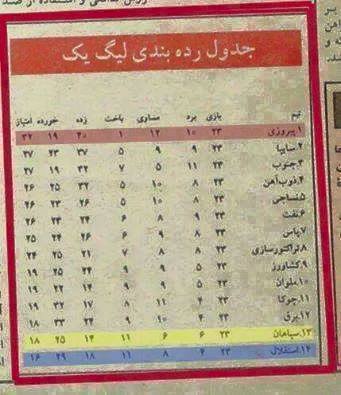 جدول رده بندی لیگ یک
تیم بازی برد مساوی باخت زده خورده امتیاز
۱.پیروزی ۲۳ ۱۰ ۱۲ ۱ ۴۰ ۱۹ ۳۲
۲.سایپا ۲۳ ۹ ۹ ۵ ۳۷ ۲۳ ۲۷
۳.جنوب ۲۳ ۱۱ ۵ ۷ ۳۲ ۱۹ ۲۷
۴.ذوب‌آهن ۲۳ ۸ ۱۰ ۵ ۳۲ ۲۵ ۲۶
۵.نساجی ۲۳ ۸ ۱۰ ۵ ۲۶ ۲۳ ۲۶
۶.نفت ۲۳ ۹ ۸ ۶ ۲۴ ۲۳ ۲۶
۷.پاس ۲۳ ۸ ۹ ۶ ۲۶ ۲۴ ۲۵
۸.تراکتورسازی ۲۳ ۸ ۸ ۷ ۲۱ ۲۵ ۲۴
۹.کشاورز ۲۳ ۵ ۹ ۹ ۲۴ ۲۵ ۱۹
۱۰.ملوان ۲۳ ۵ ۹ ۹ ۱۴ ۲۲ ۱۹
۱۱.چوکا ۲۳ ۴ ۱۱ ۸ ۱۷ ۳۲ ۱۹
۱۲.برق ۲۳ ۴ ۱۰ ۹ ۲۴ ۳۳ ۱۸
۱۳.سپاهان ۲۳ ۶ ۶ ۱۱ ۱۴ ۲۵ ۱۸
۱۴.استقلال ۲۳ ۴ ۸ ۱۱ ۱۸ ۲۹ ۱۶